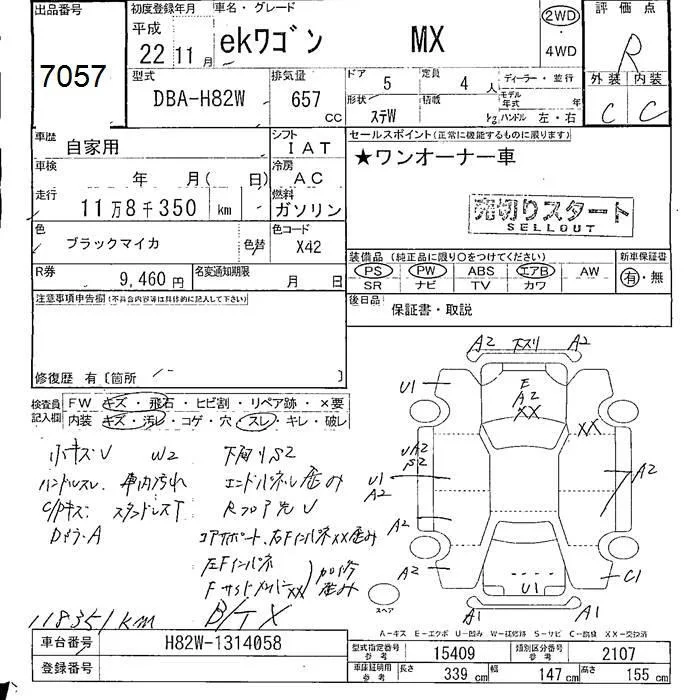 出品番号 初度登録年月 車名・グレード 2WD 評価点
7057 平成 22年 11月 ekワゴン MX ・ 4WD R
型式 排気量 ドア 5 定員 4人 ディーラー・並行 外装 内装
DBA-H82W 657 CC 形状 ステW 積載 kg モデル年式 年 ハンドル 左・右 C C
車歴 自家用 シフト IAT セールスポイント(正常に機能するものに限ります)
車検 年 月( 日) 冷房 AC ★ワンオーナー車
走行 11万8千350 km 燃料 ガソリン 売切りスタート
SELLOUT
色 ブラックマイカ 色替 色コード X42
装備品 (純正品に限り○をつけてください) 新車保証書
PS PW ABS エアB AW 有・無
SR ナビ TV カワ
R券 9,460円 名変通知期限 月 日
後日品 保証書・取説
注意事項申告欄(不具合内容等は具体的に記入して下さい)
修復歴 有〔箇所 〕
検査員記入欄 FW キズ・飛石・ヒビ割・リペア跡・×要
内装 キズ・汚レ・コゲ・穴・スレ・キレ・破レ
小キズU W2 下廻りS2
ハンドルスレ 車内汚れ エンドパネル歪み
C/Pキズ Rフロア先U
コアサポート、右FインパネXX歪み
左Fインパネ
FサイドメンバーXX
118351km
A2 下スリ A2
U1 E
A2
XX XX
UA2
S2
U1
A2 A2
A2
A2 U1 C1
スペア A1 A1
A-キズ E-エクボ U-凹み W-補修跡 S-サビ C-腐食 XX-交換済
車台番号 H82W-1314058 型式指定番号 参考 15409 類別区分番号 参考 2107
登録番号 車庫証明用 参考 長さ 339 cm 幅 147 cm 高さ 155 cm